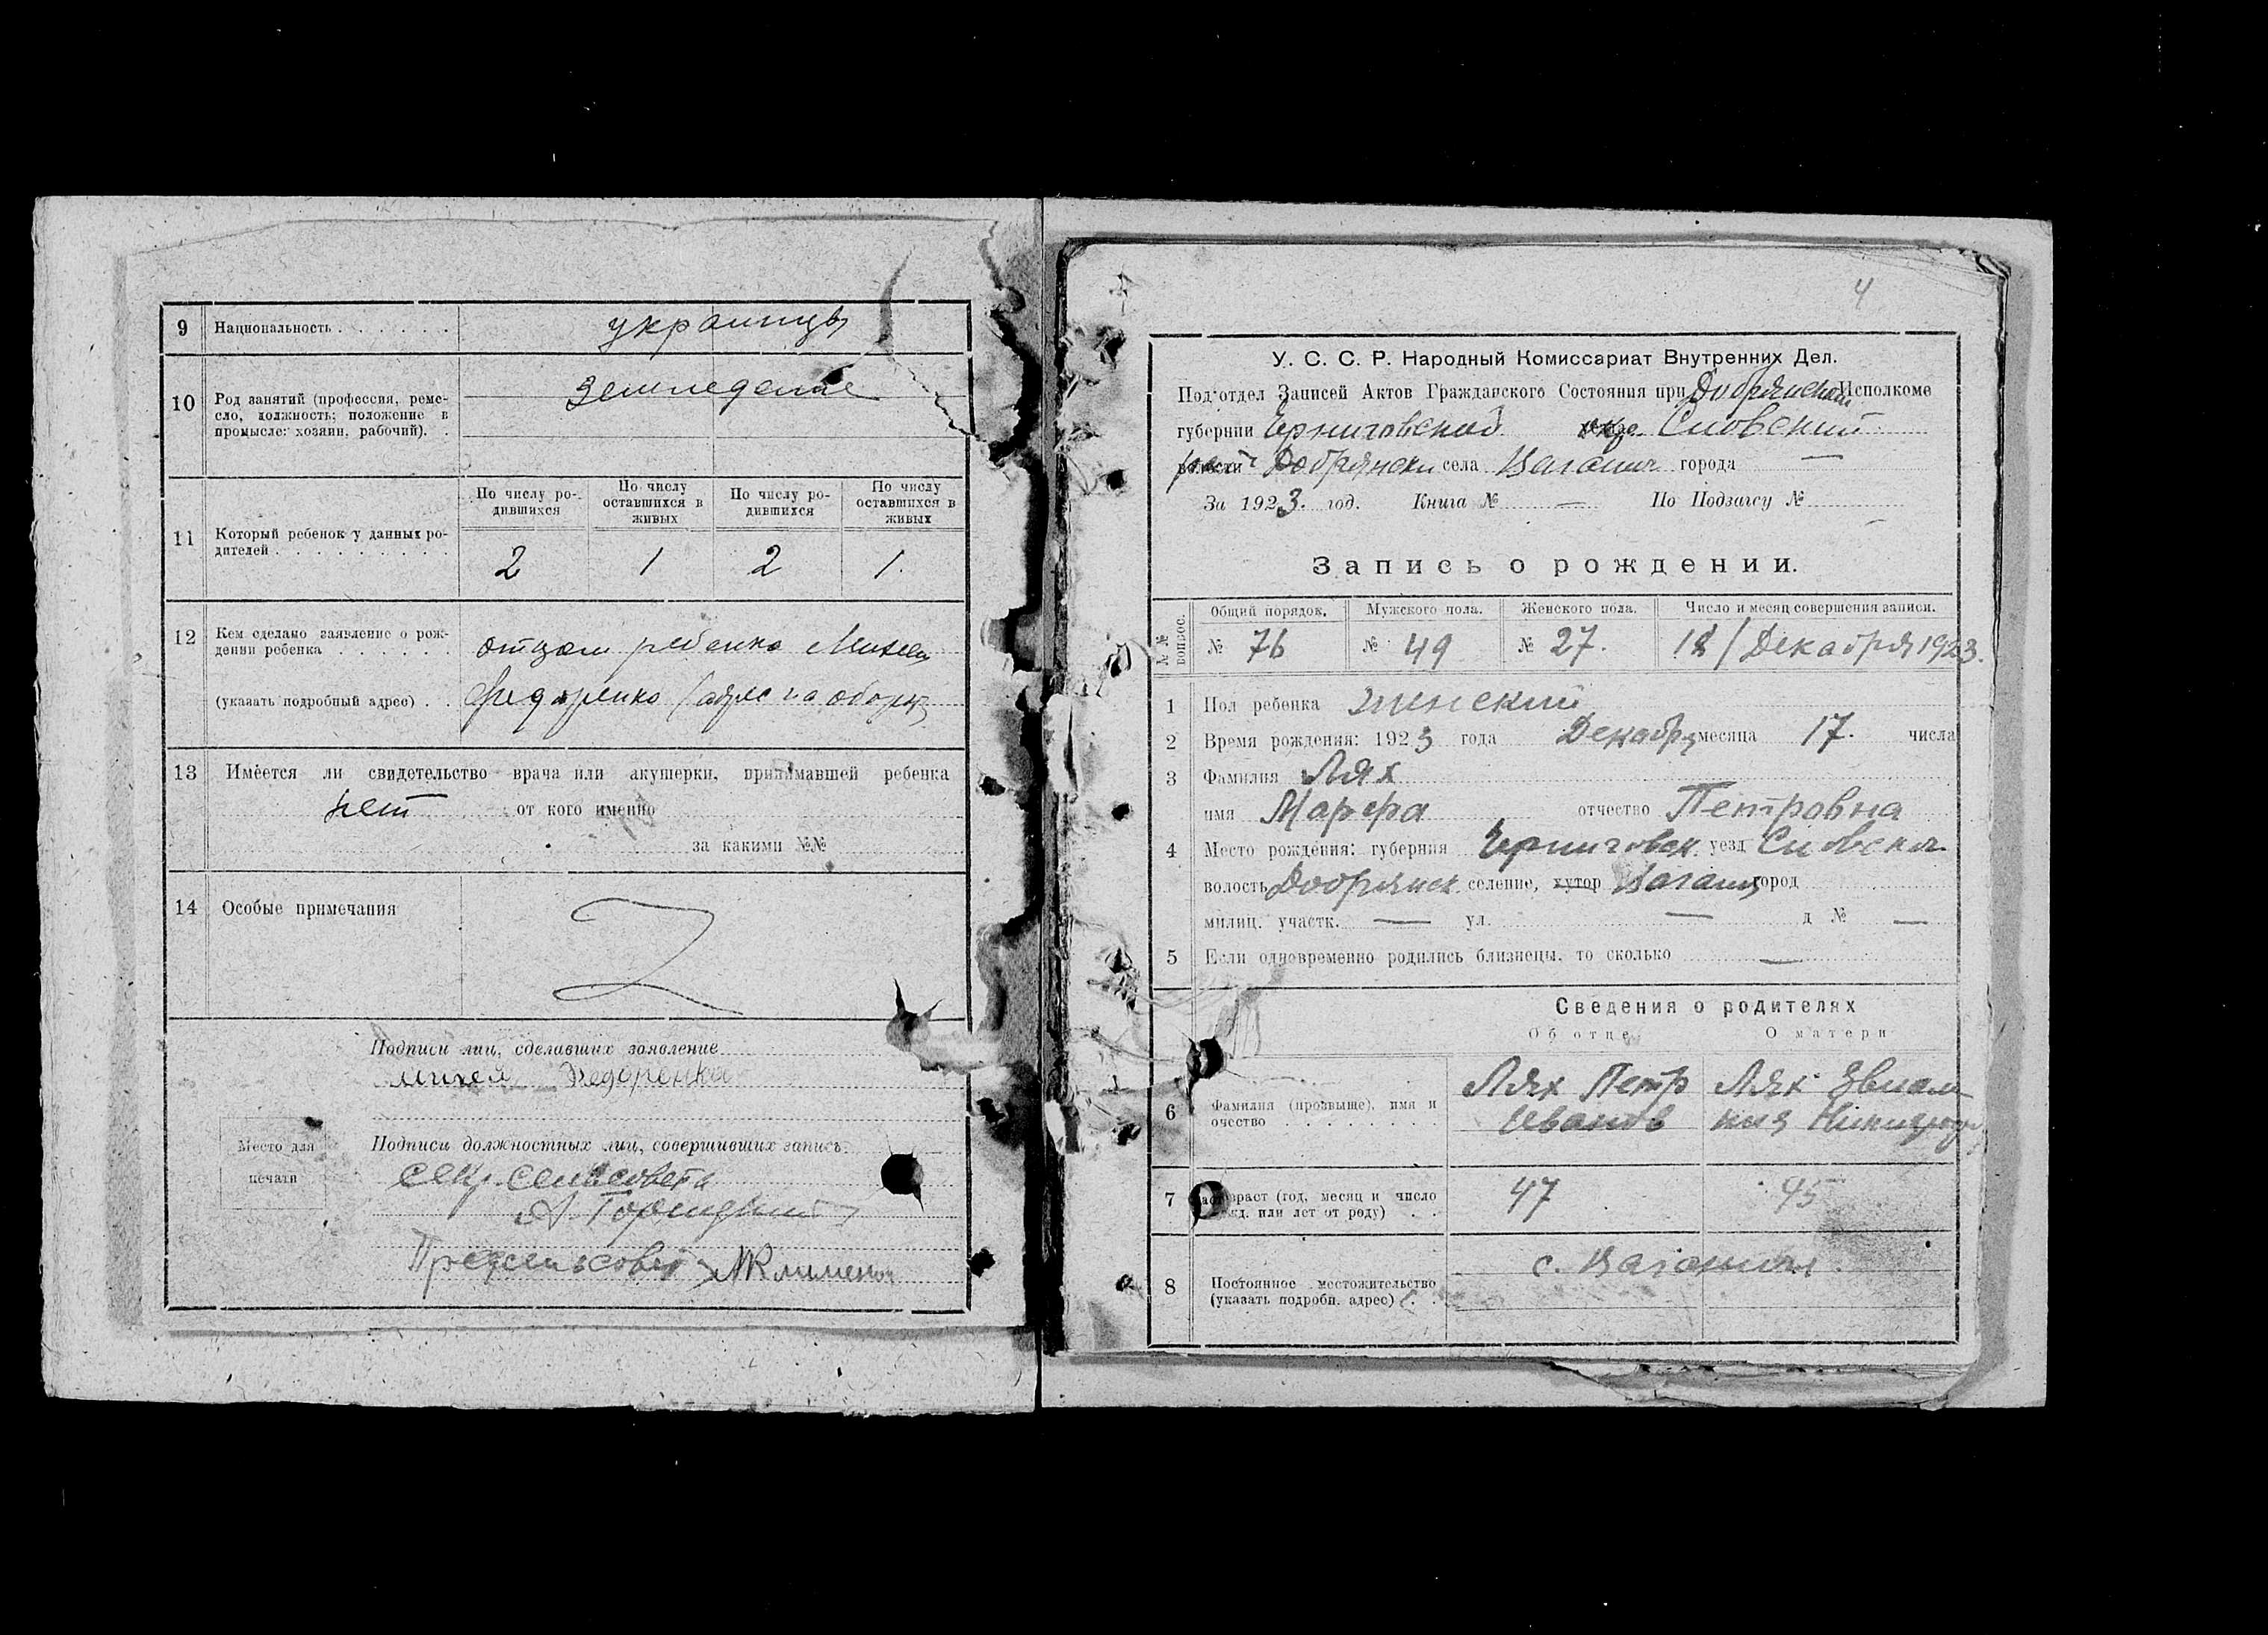 9 Национальность . . . . . . украинцы
10 Род занятий (профессия, реме-
сло, должность; положение в
промысле: хозяин, рабочий). . земледелие
По числу ро-
дившихся
По числу
оставшихся в
живых
По числу ро-
дившихся
По числу
оставшихся в
живых
11 Который ребенок у данных ро-
дителей . . . . . . . . . 2 1 2 1.
12 Кем сделано заявление о рож-
дении ребенка . . . . . . отцом ребенка Михей
(указать подробный адрес) . . Федоренко (адрес на оборот
13 Имеется ли свидетельство врача или акушерки, принимавшей ребенка
нет от кого именно
за какими №№
14 Особые примечания
Подписи лиц, сделавших заявление
михей Федоренка
Место для
печати
Подписи должностных лиц, совершивших запись
секр. сельсовета
А.
Предсельсовет
4
У. С. С. Р. Народный Комиссариат Внутренних Дел.
Под'отдел Записей Актов Гражданского Состояния при Добрянском Исполкоме
губернии Черниговской окр. Сновский
волости Добрянски села города —
За 1923. год. Книга № — По Подзагсу №
Запись о рождении.
№№ вопрос.
Общий порядок. Мужского пола. Женского пола. Число и месяц совершения записи.
№ 76 № 49 № 27. 18/Декабря 1923.
1 Пол ребенка женский
2 Время рождения: 1923 года Декабря месяца 17. числа
3 Фамилия Лях
имя Марфа отчество Петровна
4 Место рождения: губерния Черниговск. уезд Сновская
волость Добрянск селение, хутор город
милиц. участк. — ул. — д № —
5 Если одновременно родились близнецы, то сколько —
Сведения о родителях
Об отце О матери
6 Фамилия (прозвыще), имя и
очество . . . . . . . .
Лях Петр
Иванов
Лях
7 Возраст (год, месяц и число
рожд. или лет от роду) . . 47 45
8 Постоянное местожительство
(указать подробн. адрес) . . с.